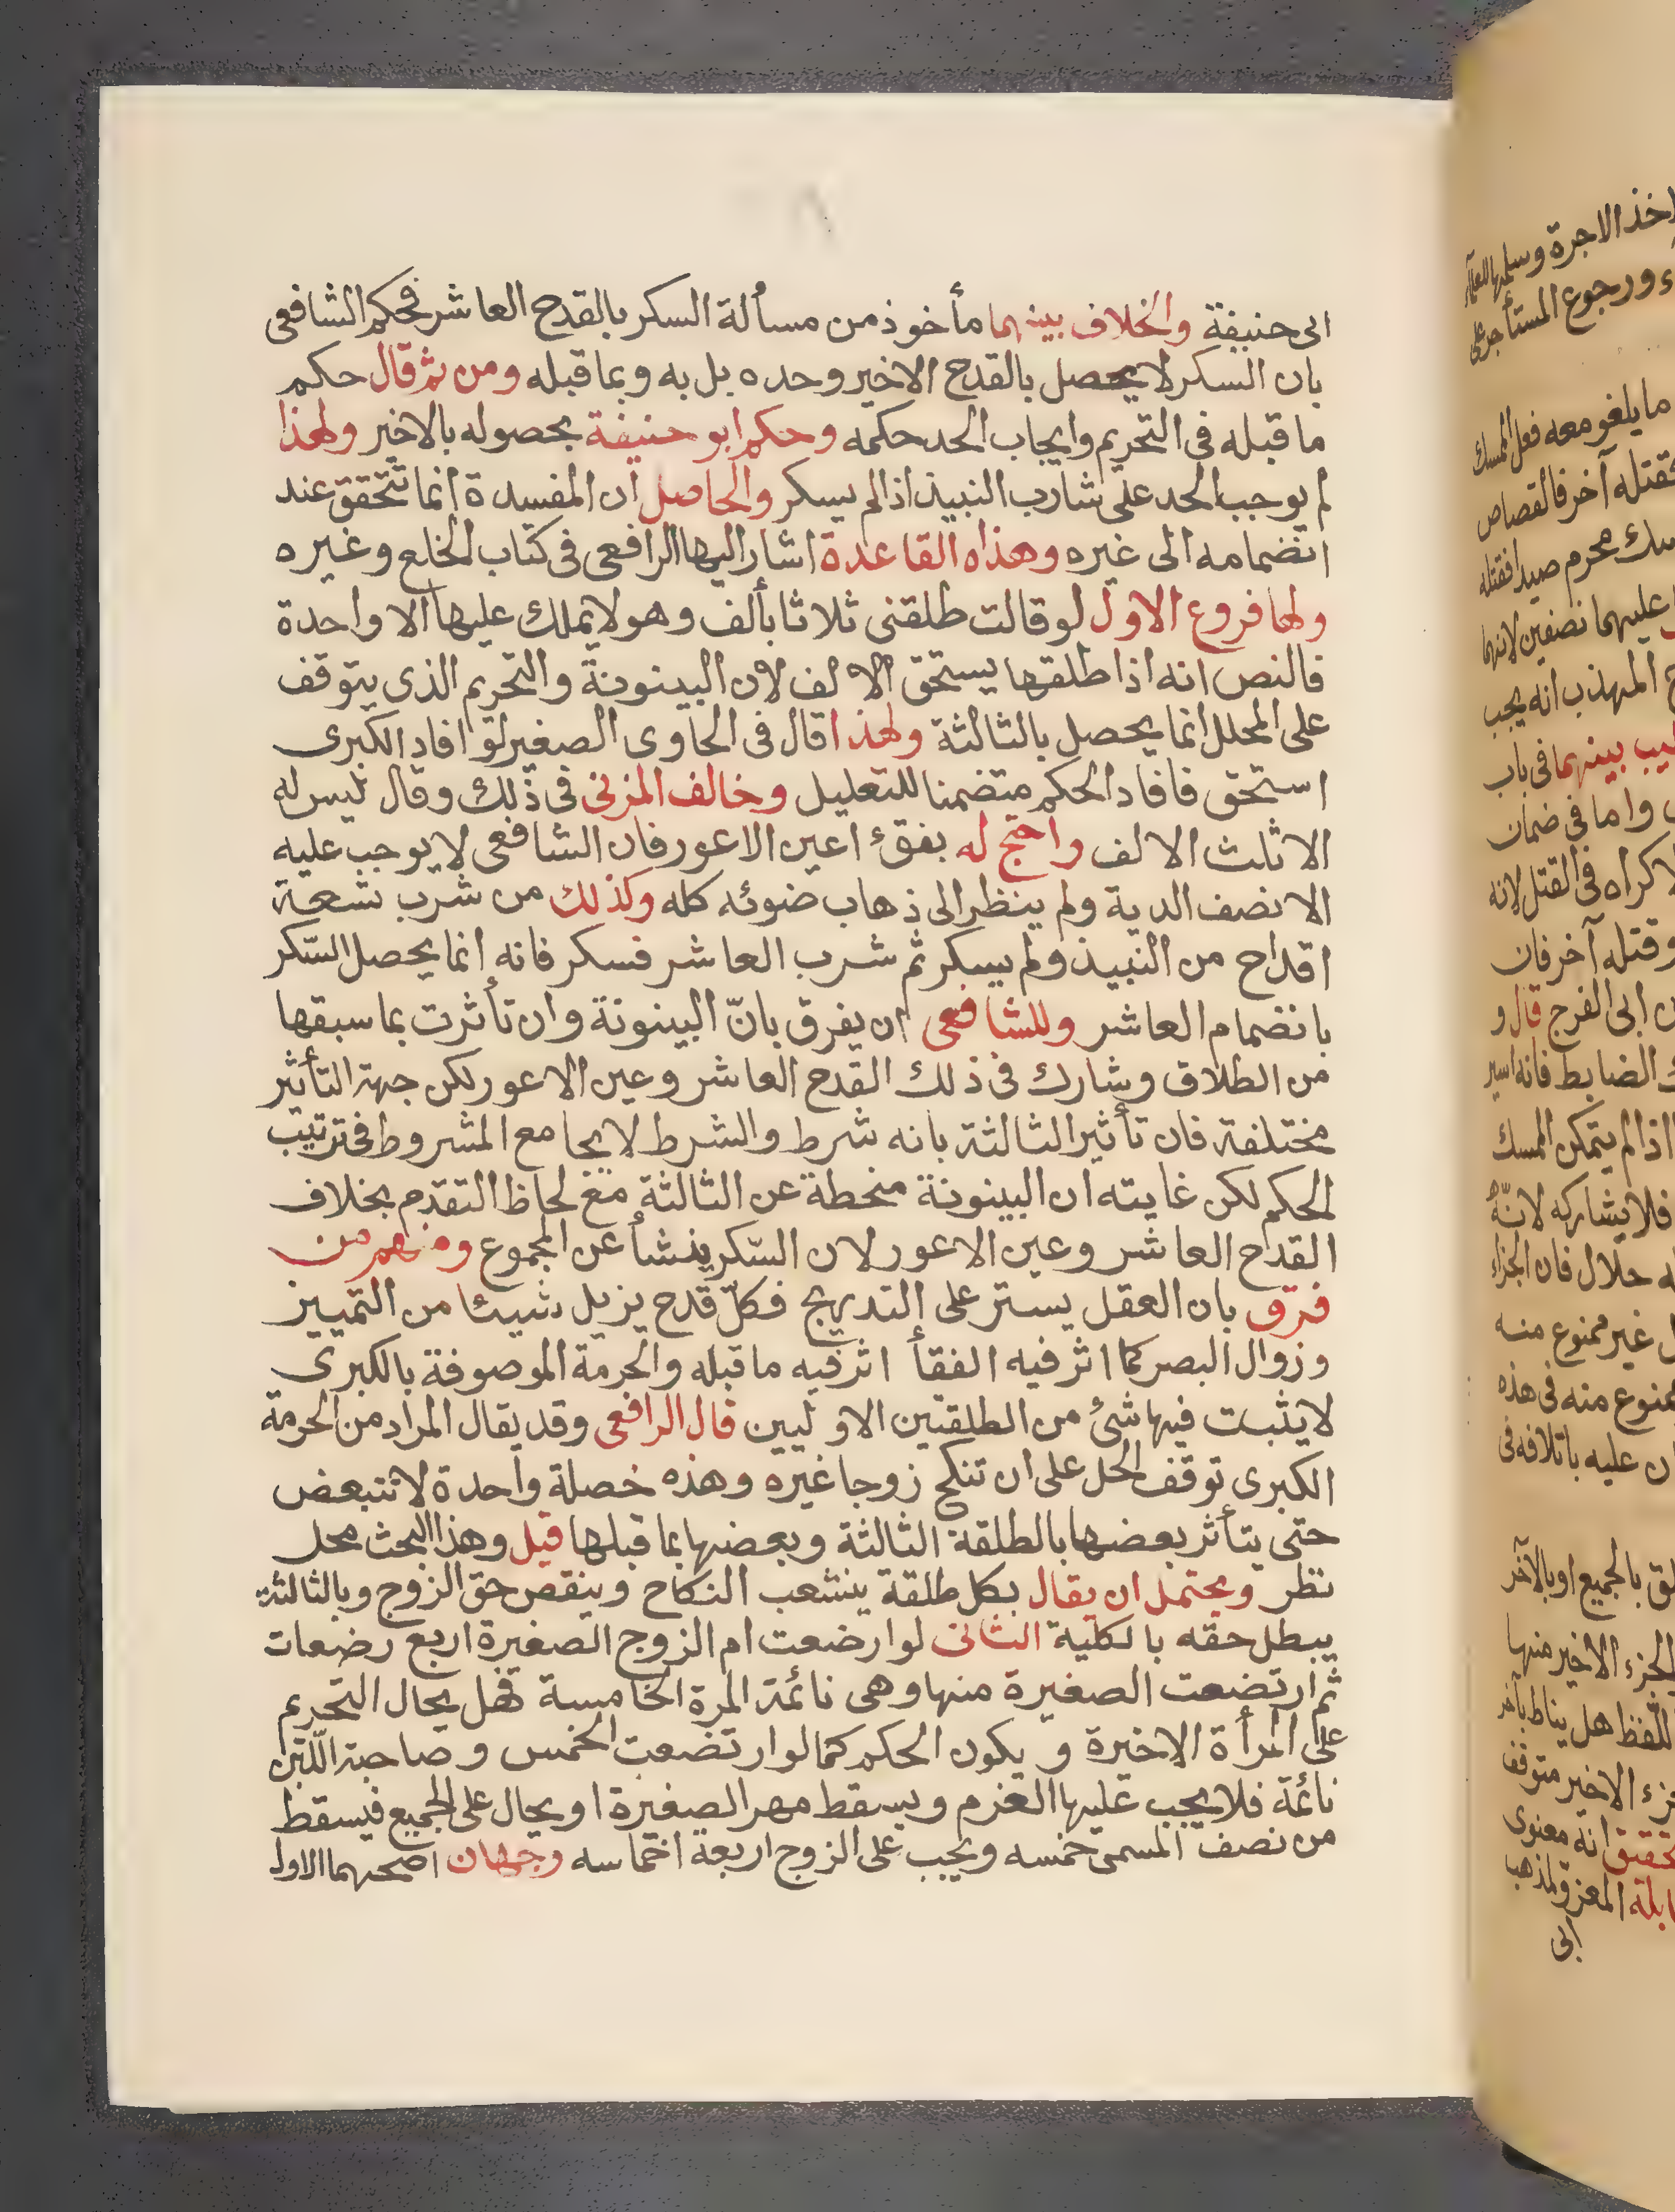 ابى حنيفة والخلاف بينهما مأخوذ من مسألة السكر بالقدح العاشر فحكم الشافعى
بان السكر لا يحصل بالقدح الاخير وحده بل به وبما قبله ومن ثم قال حكم
ما قبله فى التحريم وايجاب الحد حكمه وحكم ابو حنيفة بحصوله بالاخير ولهذا
لم يوجب الحد على شارب النبيذ اذا لم يسكر والحاصل ان المفسدة انما تتحقق عند
انضمامه الى غيره وهذه القاعدة اشار اليها الرافعى فى كتاب الخلع وغيره
ولها فروع الاول لو قالت طلقنى ثلاثا بألف وهو لا يملك عليها الا واحدة
فالنص انه اذا طلقها يستحق الالف لان البينونة والتحريم الذى يتوقف
على المحلل انما يحصل بالثالثة ولهذا قال فى الحاوى الصغير لو افاد الكبرى
استحق فافاد الحكم متضمنا للتعليل وخالف المزنى فى ذلك وقال ليس له
الا ثلث الالف واحتج له بفقئ اعين الاعور فان الشافعى لا يوجب عليه
الا نصف الدية ولم ينظر الى ذهاب ضوئه كله وكذلك من شرب تسعة
اقداح من النبيذ ولم يسكر ثم شرب العاشر فسكر فانه انما يحصل السّكر
بانضمام العاشر وللشافعى ان يفرق بانّ البينونة وان تأثرت بما سبقها
من الطلاق وشارك فى ذلك القدح العاشر وعين الاعور لكن جهة التأثير
مختلفة فان تأثير الثالثة بانه شرط والشرط لا يجامع المشروط فى ترتيب
الحكم لكن غايته ان البينونة منحطة عن الثالثة مع لحاظ التقدم بخلاف
القدح العاشر وعين الاعور لان السّكر ينشأ عن المجموع ومنهم من
فرق بان العقل يستتر على التدريج فكلّ قدح يزيل شيئا من التمييز
وزوال البصر كما اثر فيه الفقأ اثر فيه ما قبله والحرمة الموصوفة بالكبرى
لا يثبت فيها شئ من الطلقتين الاوليين قال الرافعى وقد يقال المراد من الحرمة
الكبرى توقف الحل على ان تنكح زوجا غيره وهذه خصلة واحدة لا تتبعض
حتى يتأثر بعضها بالطلقة الثالثة وبعضها بما قبلها قيل وهذا البحث محل
نظر ويحتمل ان يقال بكل طلقة ينشعب النكاح وينقص حق الزوج وبالثالثة
يبطل حقه بالكلية الثانى لو ارضعت ام الزوج الصغيرة اربع رضعات
ثم ارتضعت الصغيرة منها وهى نائمة المرة الخامسة فهل يحال التحريم
على المرأة الاخيرة و يكون الحكم كما لو ارتضعت الخمس و صاحبة اللّبن
نائمة فلا يجب عليها الغرم ويسقط مهر الصغيرة او يحال على الجميع فيسقط
من نصف المسمى خمسه ويجب على الزوج اربعة اخماسه وجهان اصحهما الاول
اخذ الاجرة وسلمها
ورجوع المستأجر على
ما يلغو معه فعل الممسك
فقتله آخر فالقصاص
محرم صيدا فقتله
عليهما نصفين لانهما
المهذب انه يجب
بينهما فى باب
واما فى ضمان
فى القتل لانه
وقتله آخر فان
ابى الفرج قال و
الضابط فانه
اذا لم يتمكن الممسك
فلا يشاركه لانّه
حلال فان الجزاء
غير ممنوع منه
ممنوع منه فى هذه
عليه باتلافه فى
بالجميع او بالآخر
الجزء الاخير منها
اللفظ هل يناط بآخر
الاخير متوقف
انه معنوى
المعزو لمذهب
ابى